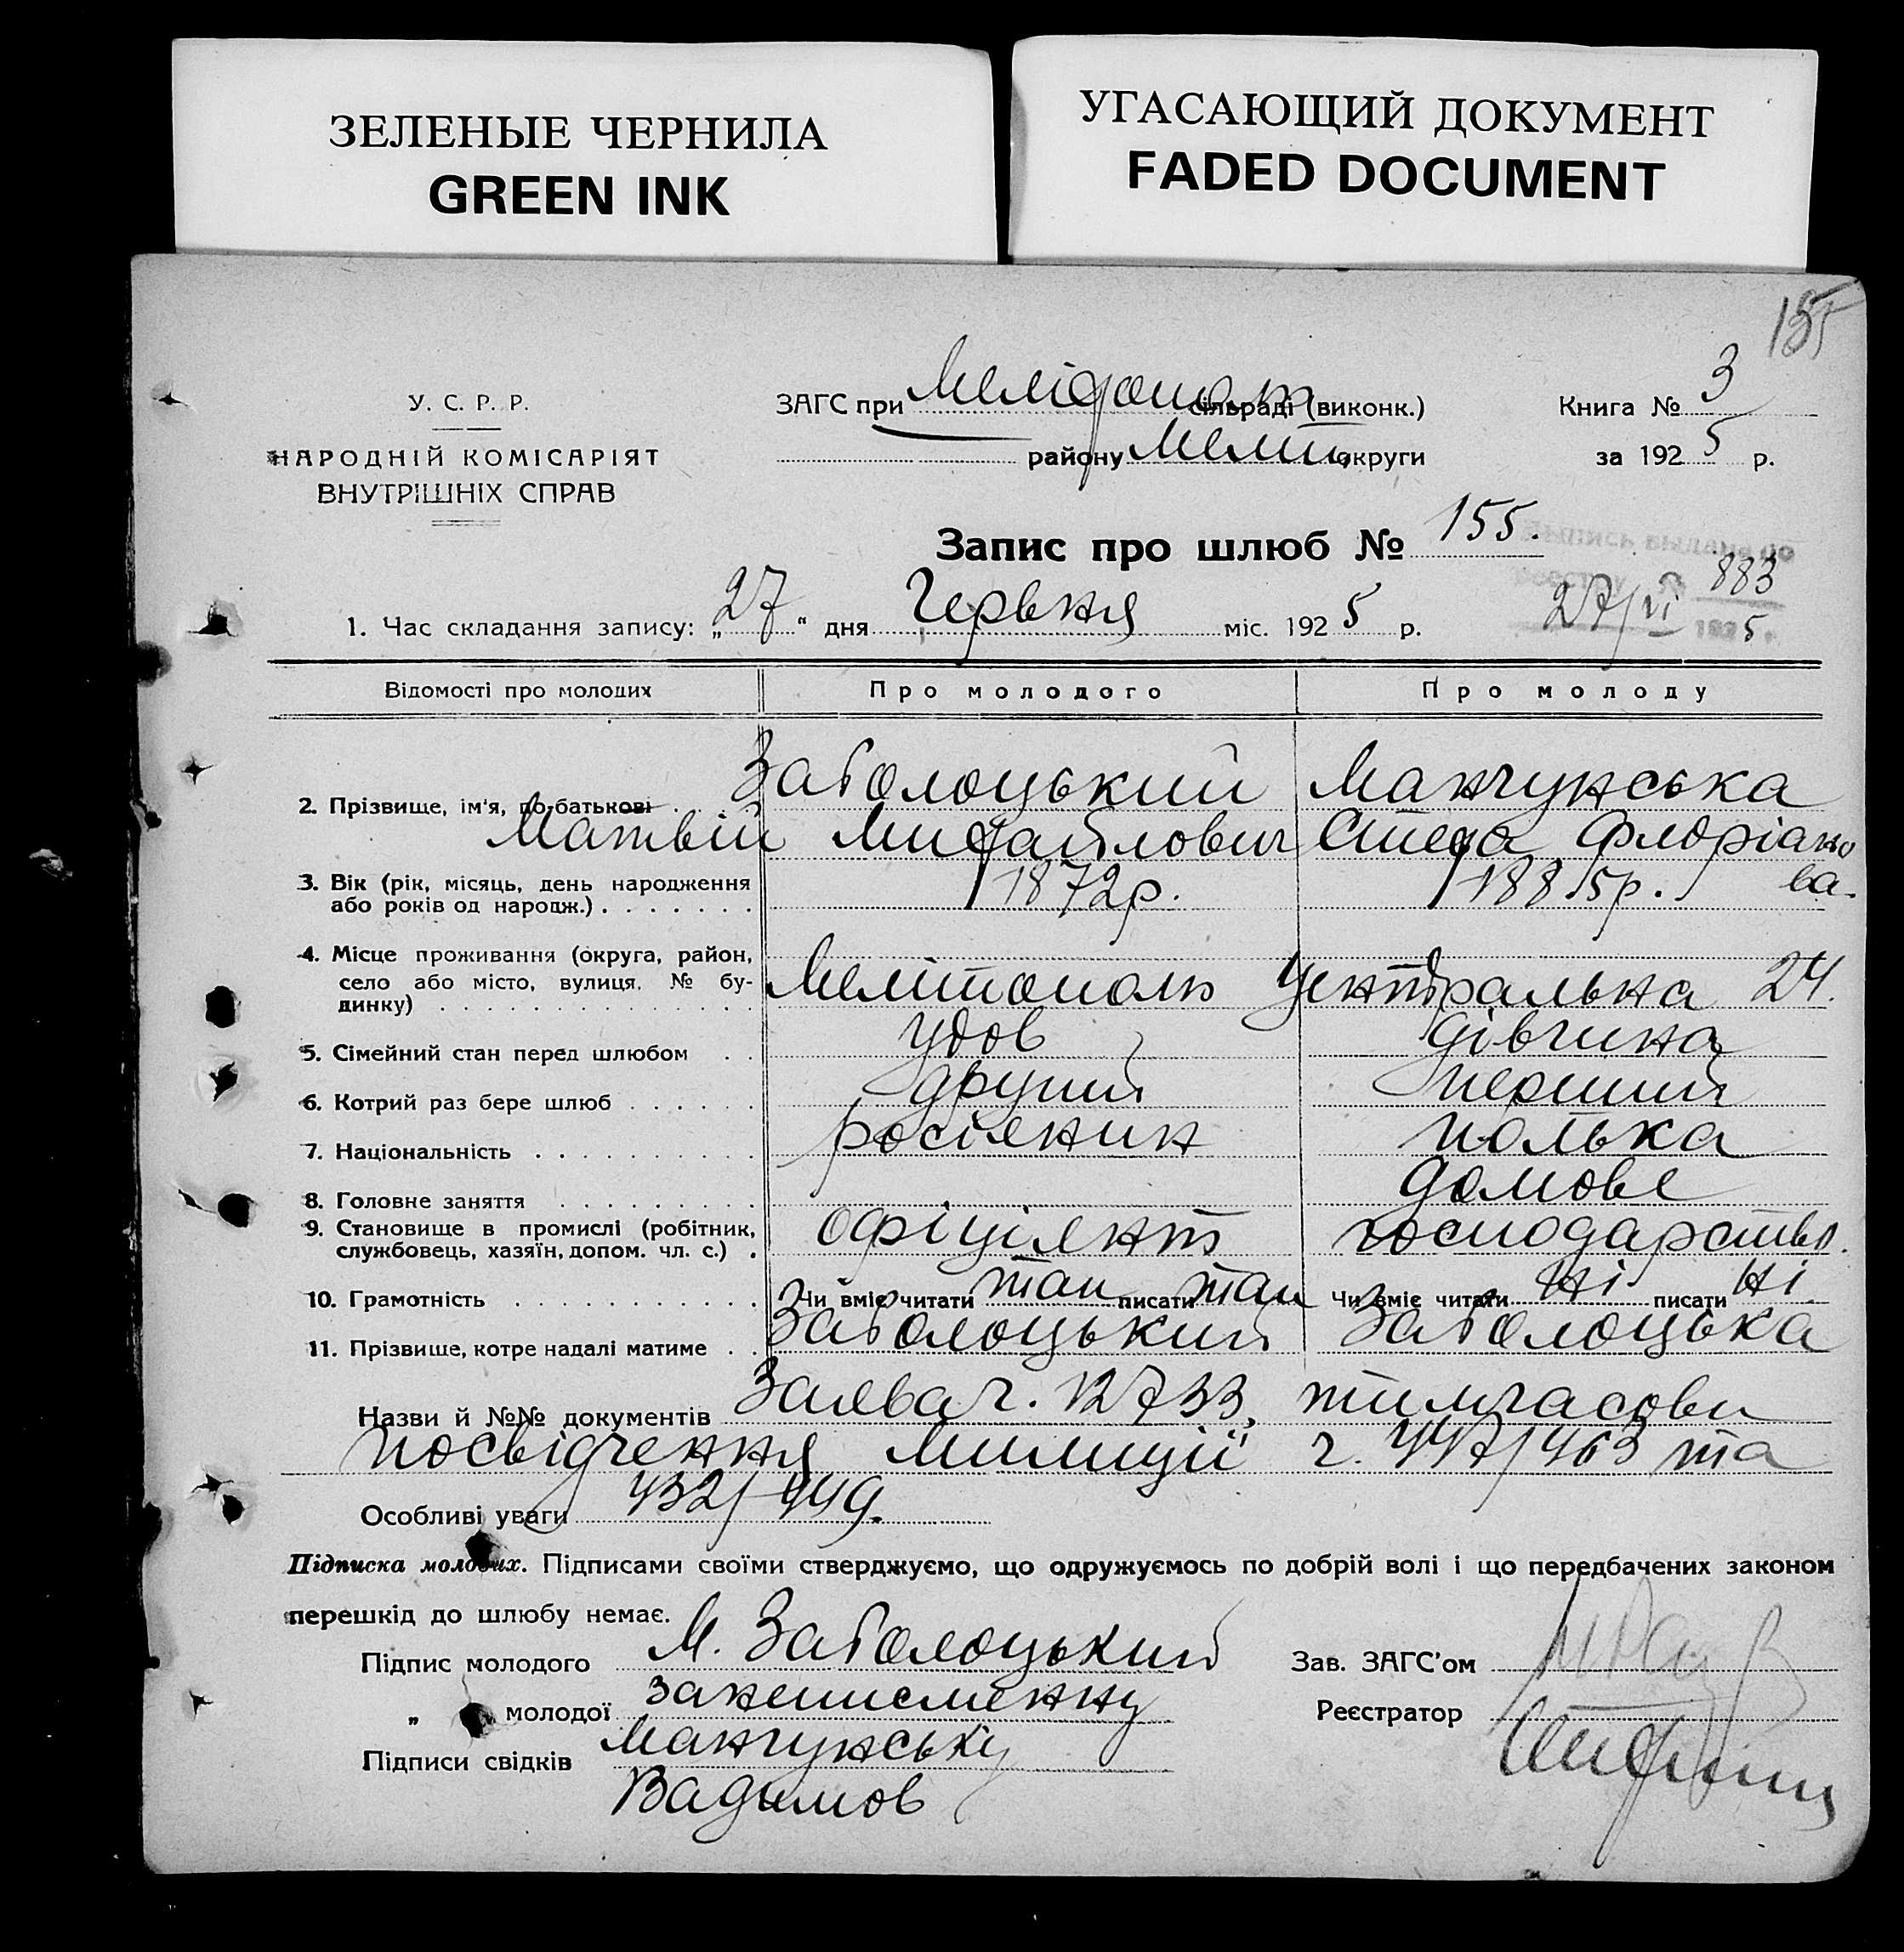 ЗЕЛЕНЫЕ ЧЕРНИЛА
GREEN INK
УГАСАЮЩИЙ ДОКУМЕНТ
FADED DOCUMENT
155
У. С. Р. Р.
НАРОДНІЙ КОМІСАРІЯТ
ВНУТРІШНІХ СПРАВ
ЗАГС при сільраді (виконк.)
району Мелит. округи
Книга № 3
за 1925 р.
Запис про шлюб № 155.
883
27/VI 1925
1. Час складання запису: „27“ дня Червня міс. 1925 р.
Відомості про молодих Про молодого Про молоду
2. Прізвище, ім'я, по-батькові Заболоцький Манчунська
Матвій Михайлович Стефа Флоріано
ва.
3. Вік (рік, місяць, день народження
або років од народж.) 1872р. 1885р.
4. Місце проживання (округа, район,
село або місто, вулиця, № бу-
динку) Мелітополь Центральна 24.
5. Сімейний стан перед шлюбом удов дівчина
6. Котрий раз бере шлюб другий перший
7. Національність росіянин полька
8. Головне заняття домове
9. Становище в промислі (робітник,
службовець, хазяїн, допом. чл. с.) офіціянт господарство.
10. Грамотність Чи вміє читати так писати так Чи вміє читати ні писати ні.
11. Прізвище, котре надалі матиме Заболоцький Заболоцька
Назви й №№ документів Заява ч. 12733, тимчасові
посвідчення милиції ч. 447/463 та
Особливі уваги 432/449.
Підписка молодих. Підписами своїми стверджуємо, що одружуємось по добрій волі і що передбачених законом
перешкід до шлюбу немає.
Підпис молодого М. Заболоцький
„ молодої за неписменну
Манчунську
Підписи свідків
Вадимов
Зав. ЗАГС'ом
Реєстратор